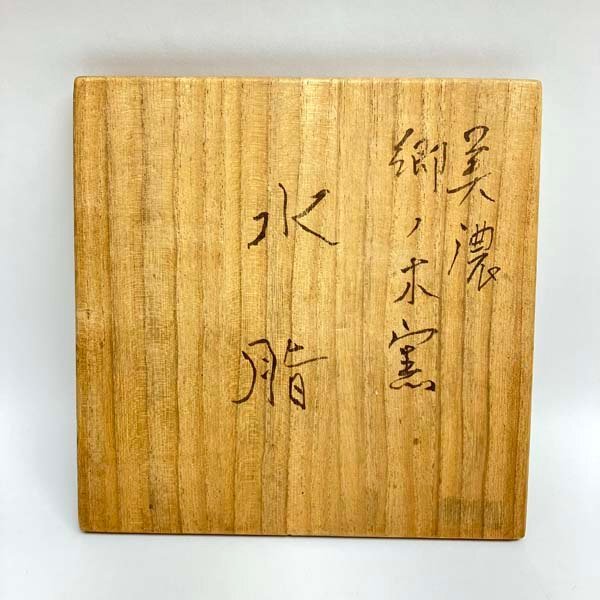 美濃
郷ノ木窯
水脂